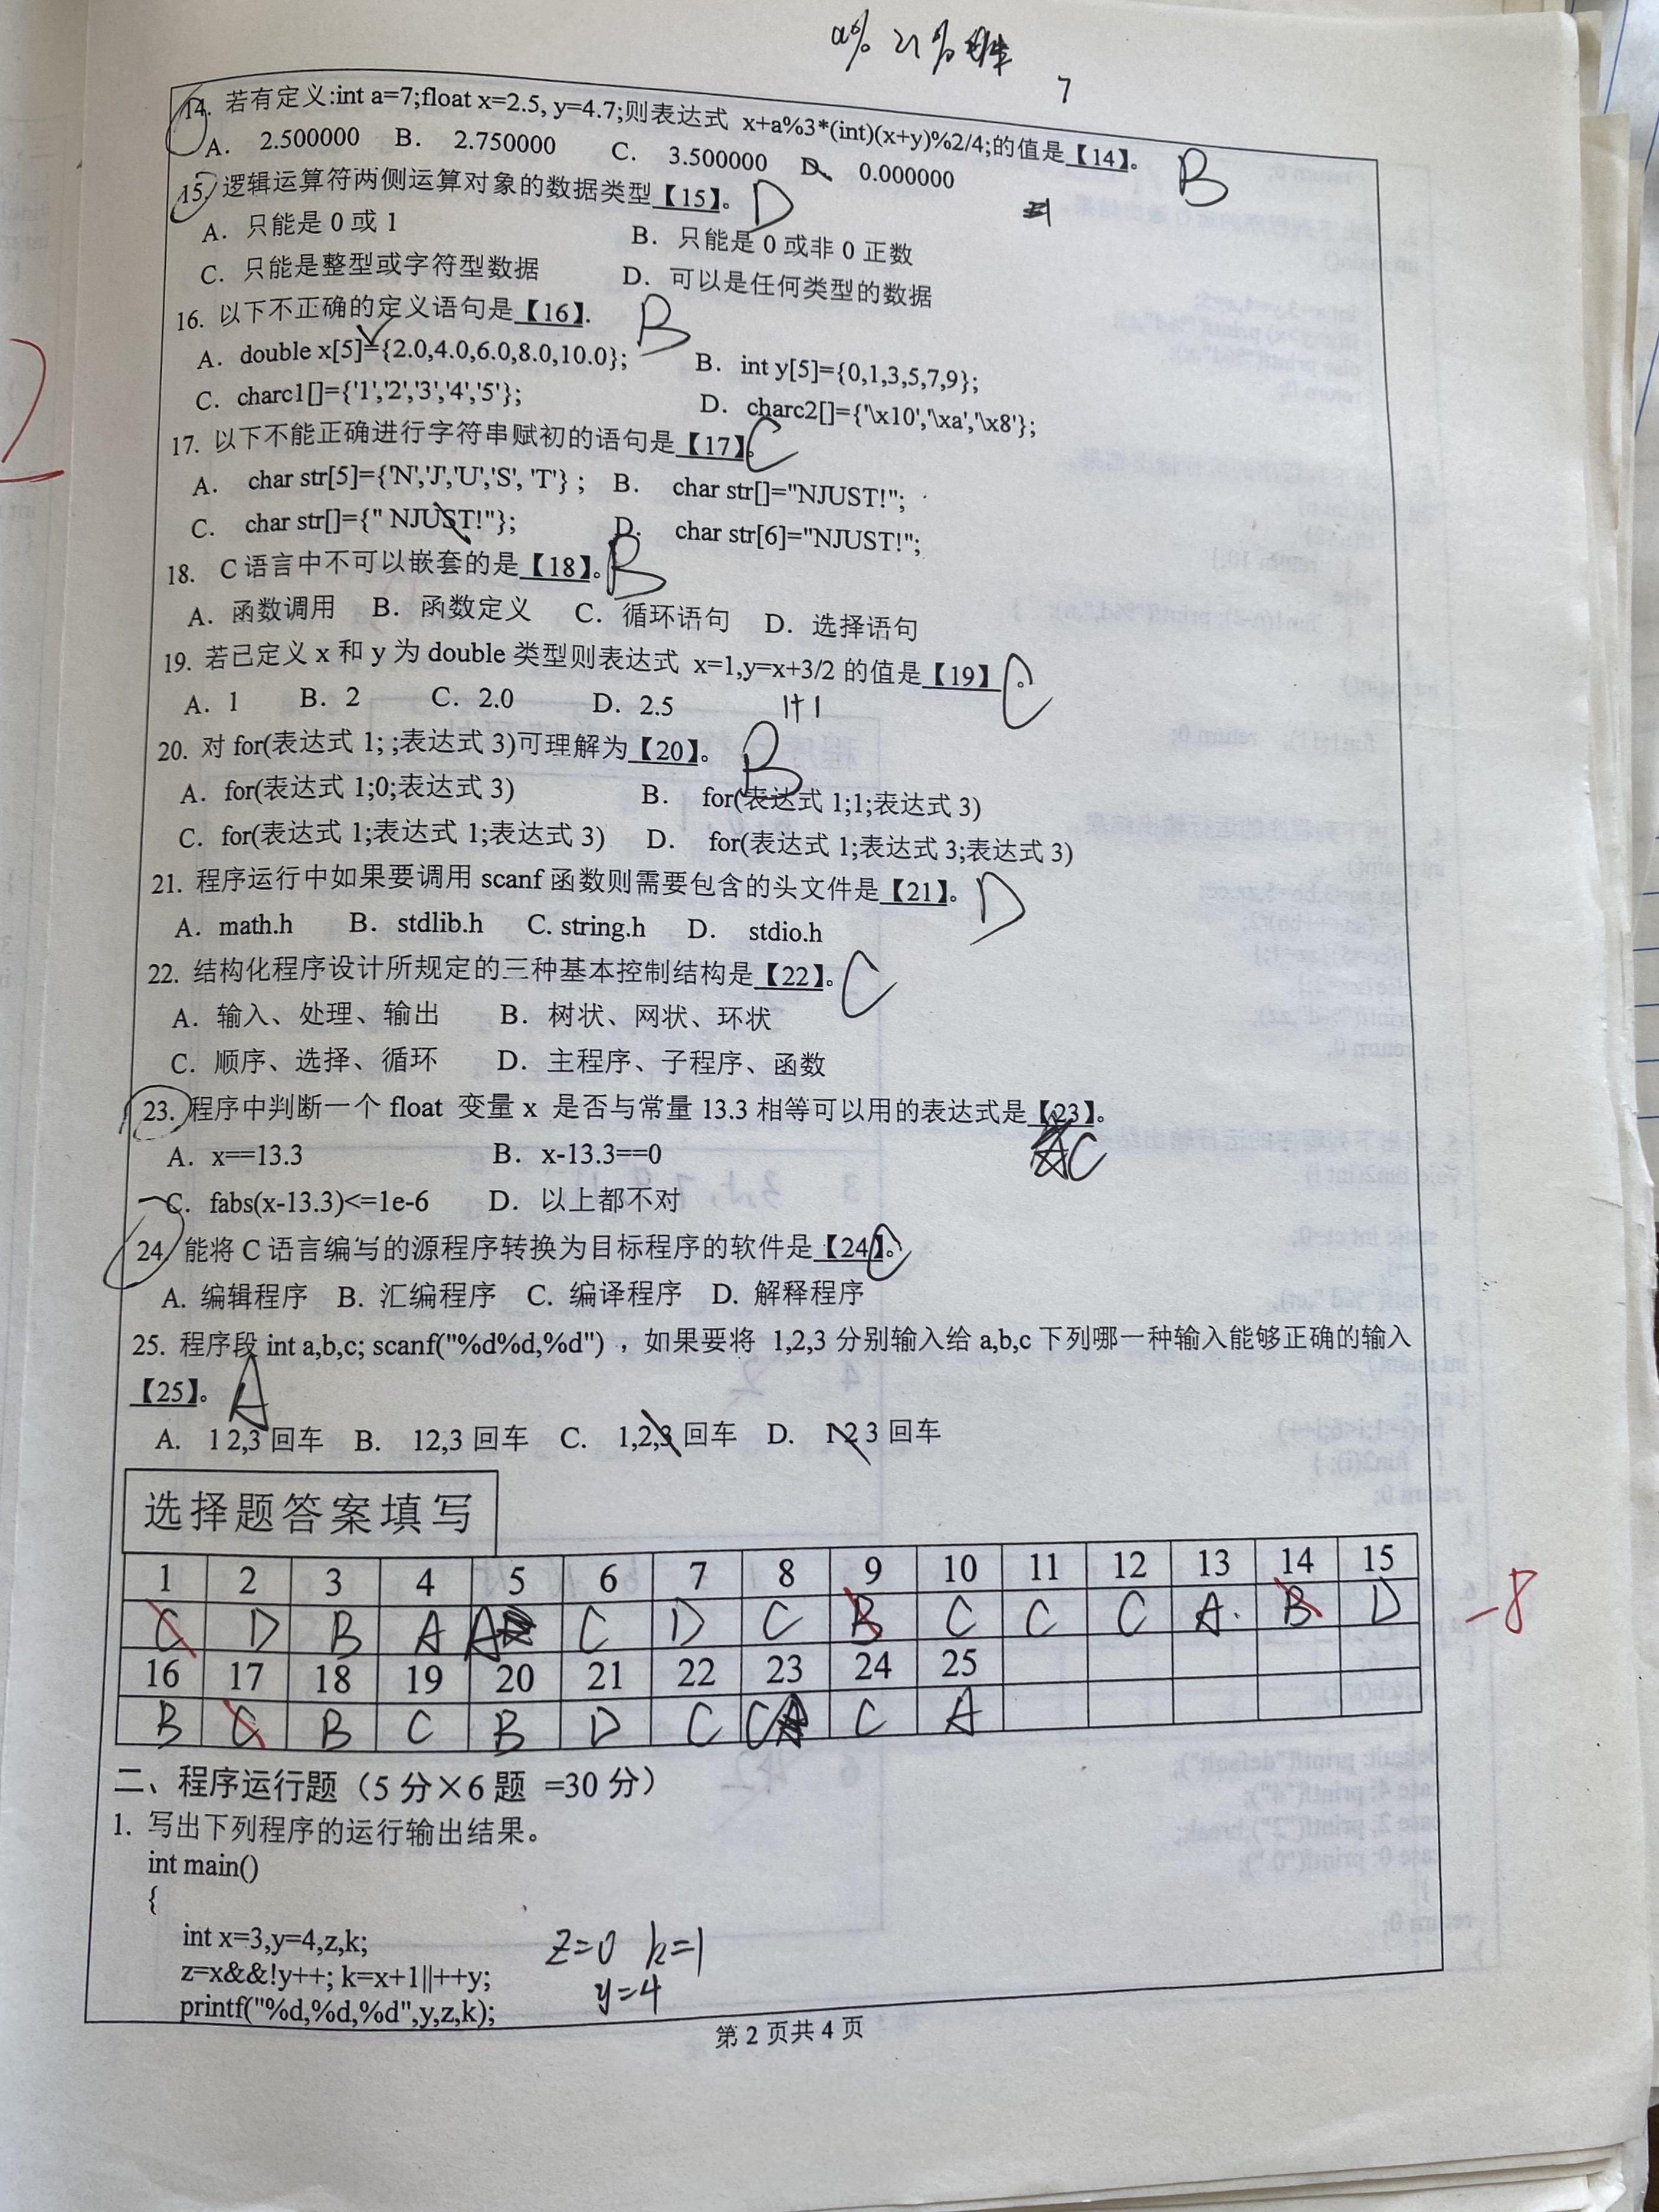 7
14. 若有定义:int a=7;float x=2.5, y=4.7;则表达式 x+a%3*(int)(x+y)%2/4;的值是【14】。 B
A. 2.500000 B. 2.750000 C. 3.500000 D. 0.000000
15. 逻辑运算符两侧运算对象的数据类型【15】。 D
A. 只能是 0 或 1 B. 只能是 0 或非 0 正数
C. 只能是整型或字符型数据 D. 可以是任何类型的数据
16. 以下不正确的定义语句是【16】. B
A. double x[5]={2.0,4.0,6.0,8.0,10.0}; B. int y[5]={0,1,3,5,7,9};
C. charc1[]={'1','2','3','4','5'}; D. charc2[]={'\x10','\xa','\x8'};
17. 以下不能正确进行字符串赋初的语句是【17】。 C
A. char str[5]={'N','J','U','S', 'T'} ; B. char str[]="NJUST!";
C. char str[]={" NJUST!"}; D. char str[6]="NJUST!";
18. C 语言中不可以嵌套的是【18】。 B
A. 函数调用 B. 函数定义 C. 循环语句 D. 选择语句
19. 若已定义 x 和 y 为 double 类型则表达式 x=1,y=x+3/2 的值是【19】。 C
A. 1 B. 2 C. 2.0 D. 2.5 1+1
20. 对 for(表达式 1; ;表达式 3)可理解为【20】。 B
A. for(表达式 1;0;表达式 3) B. for(表达式 1;1;表达式 3)
C. for(表达式 1;表达式 1;表达式 3) D. for(表达式 1;表达式 3;表达式 3)
21. 程序运行中如果要调用 scanf 函数则需要包含的头文件是【21】。 D
A. math.h B. stdlib.h C. string.h D. stdio.h
22. 结构化程序设计所规定的三种基本控制结构是【22】。 C
A. 输入、处理、输出 B. 树状、网状、环状
C. 顺序、选择、循环 D. 主程序、子程序、函数
23. 程序中判断一个 float 变量 x 是否与常量 13.3 相等可以用的表达式是【23】。
A. x==13.3 B. x-13.3==0 C
C. fabs(x-13.3)<=1e-6 D. 以上都不对
24. 能将 C 语言编写的源程序转换为目标程序的软件是【24】。 C
A. 编辑程序 B. 汇编程序 C. 编译程序 D. 解释程序
25. 程序段 int a,b,c; scanf("%d%d,%d") ，如果要将 1,2,3 分别输入给 a,b,c 下列哪一种输入能够正确的输入
【25】。 A
A. 1 2,3 回车 B. 12,3 回车 C. 1,2,3 回车 D. 1 2 3 回车
选择题答案填写
1 2 3 4 5 6 7 8 9 10 11 12 13 14 15
C D B A A C D C B C C C A. B D -8
16 17 18 19 20 21 22 23 24 25
B C B C B D C C C A
二、程序运行题（5 分×6 题 =30 分）
1. 写出下列程序的运行输出结果。
int main()
{
int x=3,y=4,z,k; z=0 k=1
z=x&&!y++; k=x+1||++y; y=4
printf("%d,%d,%d",y,z,k);
第 2 页共 4 页